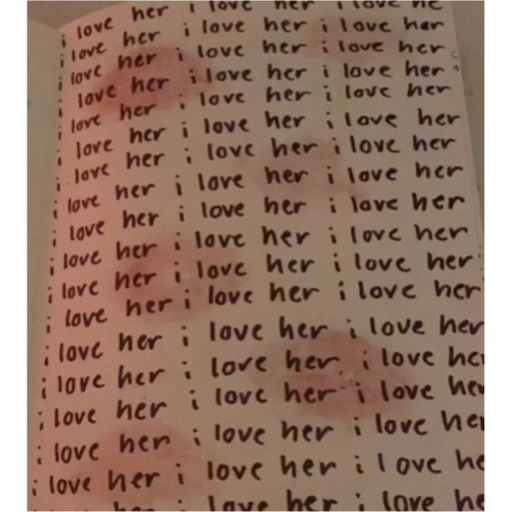 i love her i love her i love he
i love her i love her i love her
i love her i love her i love her
i love her i love her i love her
i love her i love her i love her
i love her i love her i love her
i love her i love her i love her
i love her i love her i love her
i love her i love her i love her
i love her i love her i love her
i love her i love her i love her
i love her i love her i love her
i love her i love her i love her
i love her i love her i love her
i love her i love her i love he
i love her i love her i love her
i love her i love her i love he
i love her i love her i love he
i love her i love he